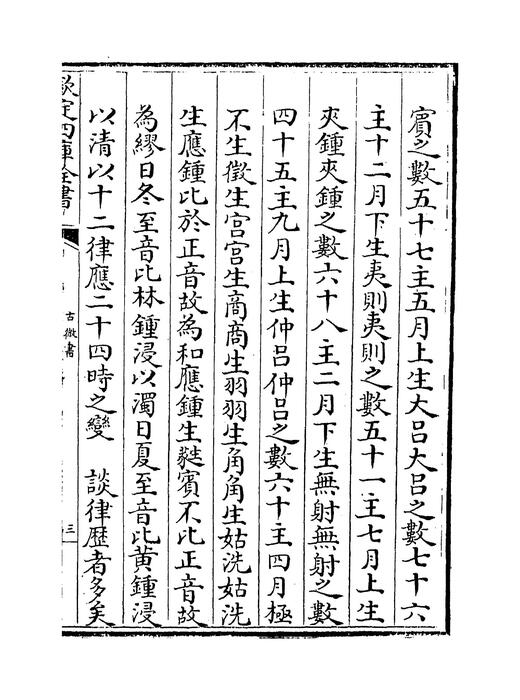 賓之數五十七主五月上生大吕大吕之數七十六
主十二月下生夷則夷則之數五十一主七月上生
夾鍾夾鍾之數六十八主二月下生無射無射之數
四十五主九月上生仲吕仲吕之數六十主四月極
不生徵生宫宫生商商生羽羽生角角生姑洗姑洗
生應鍾比於正音故為和應鍾生蕤賓不比正音故
為繆日冬至音比林鍾浸以濁日夏至音比黄鍾浸
以清以十二律應二十四時之變　談律歴者多矣
欽定四庫全書
古微書
三